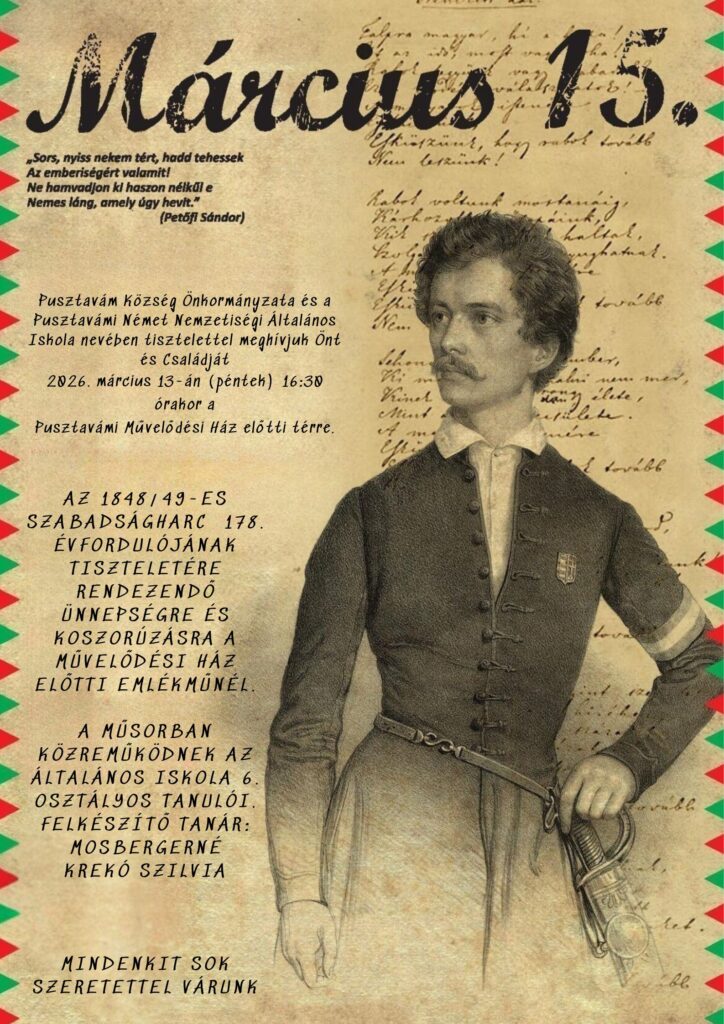 Március 15.
„Sors, nyiss nekem tért, hadd tehessek
Az emberiségért valamit!
Ne hamvadjon ki haszon nélkül e
Nemes láng, amely úgy hevit.”
(Petőfi Sándor)
Pusztavám Község Önkormányzata és a
Pusztavámi Német Nemzetiségi Általános
Iskola nevében tisztelettel meghívjuk Önt
és Családját
2026. március 13-án (péntek) 16:30
órakor a
Pusztavámi Művelődési Ház előtti térre.
AZ 1848/49-ES
SZABADSÁGHARC 178.
ÉVFORDULÓJÁNAK
TISZTELETÉRE
RENDEZENDŐ
ÜNNEPSÉGRE ÉS
KOSZORÚZÁSRA A
MŰVELŐDÉSI HÁZ
ELŐTTI EMLÉKMŰNÉL.
A MŰSORBAN
KÖZREMŰKÖDNEK AZ
ÁLTALÁNOS ISKOLA 6.
OSZTÁLYOS TANULÓI.
FELKÉSZÍTŐ TANÁR:
MOSBERGERNÉ
KREKÓ SZILVIA
MINDENKIT SOK
SZERETETTEL VÁRUNK
Talpra magyar, hí a haza!
Esküszünk, hogy rabok tovább
Nem leszünk!
Rabok voltunk mostanáig,